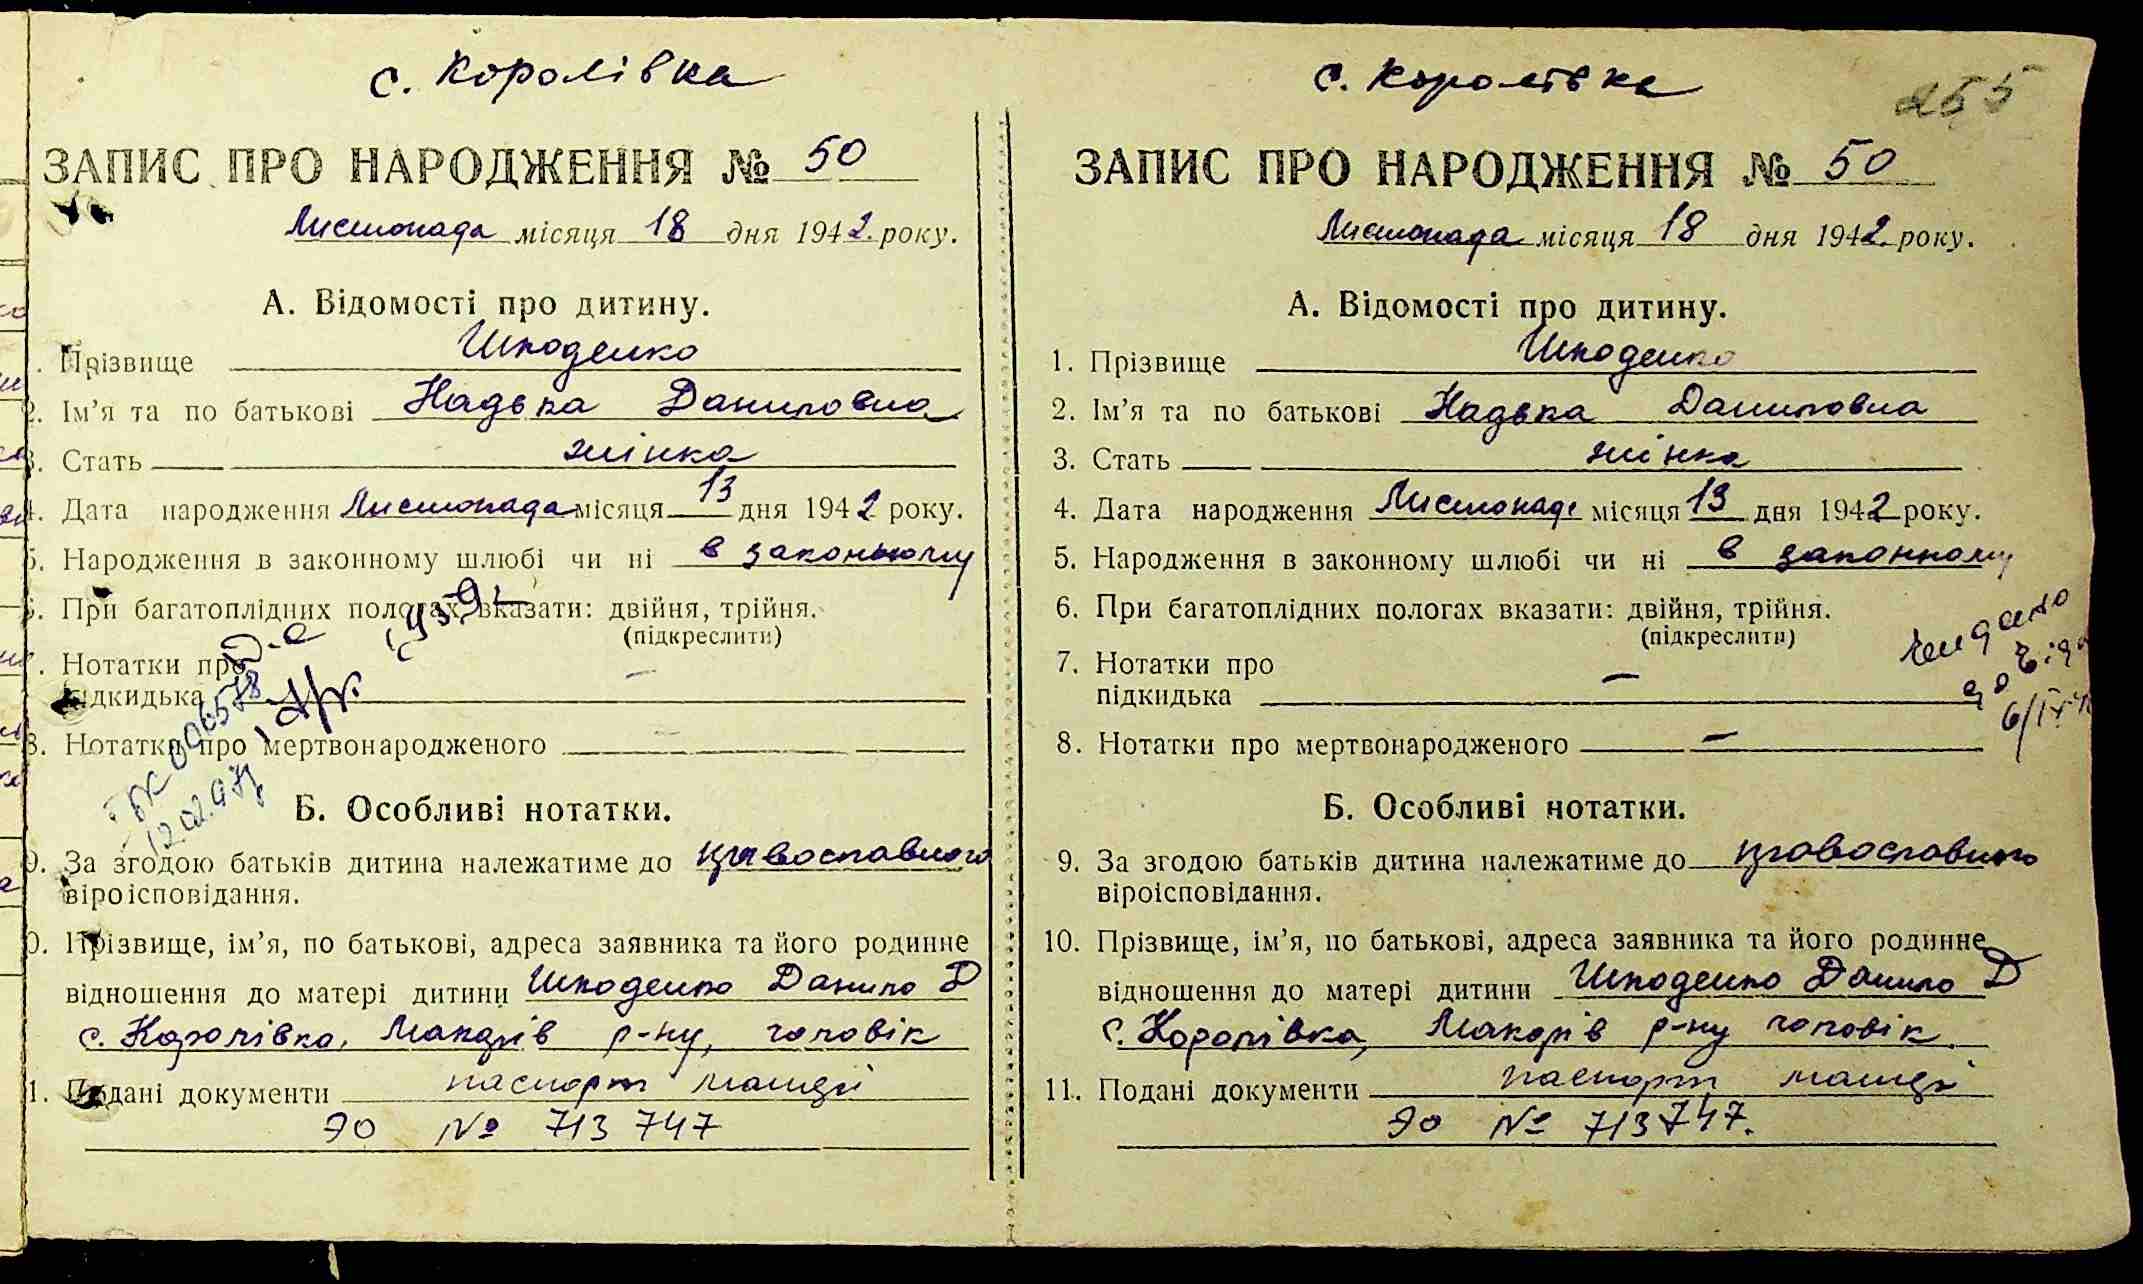 с. Королівка
ЗАПИС ПРО НАРОДЖЕННЯ № 50
Листопада місяця 18 дня 1942 року.
А. Відомості про дитину.
Прізвище Шподенко
2. Ім'я та по батькові Надька Даниловна
3. Стать жінка
4. Дата народження Листопада місяця 13 дня 1942 року.
5. Народження в законному шлюбі чи ні в законному
6. При багатоплідних пологах вказати: двійня, трійня.
(підкреслити)
7. Нотатки про
підкидька —
8. Нотатки про мертвонародженого
12.02.97
Б. Особливі нотатки.
9. За згодою батьків дитина належатиме до православного
віроісповідання.
10. Прізвище, ім'я, по батькові, адреса заявника та його родинне
відношення до матері дитини Шподенко Данило Д
с. Королівка, Макарів р-ну, чоловік
11. Подані документи паспорт матері
ЭО № 713747
с. Королівка
255
ЗАПИС ПРО НАРОДЖЕННЯ № 50
Листопада місяця 18 дня 1942 року.
А. Відомості про дитину.
1. Прізвище Шподенко
2. Ім'я та по батькові Надька Даниловна
3. Стать жінка
4. Дата народження Листопада місяця 13 дня 1942 року.
5. Народження в законному шлюбі чи ні в законному
6. При багатоплідних пологах вказати: двійня, трійня.
(підкреслити)
7. Нотатки про
підкидька —
8. Нотатки про мертвонародженого —
Б. Особливі нотатки.
9. За згодою батьків дитина належатиме до православного
віроісповідання.
10. Прізвище, ім'я, по батькові, адреса заявника та його родинне
відношення до матері дитини Шподенко Данило Д
с. Королівка, Макарів р-ну чоловік
11. Подані документи паспорт матері
ЭО № 713747.